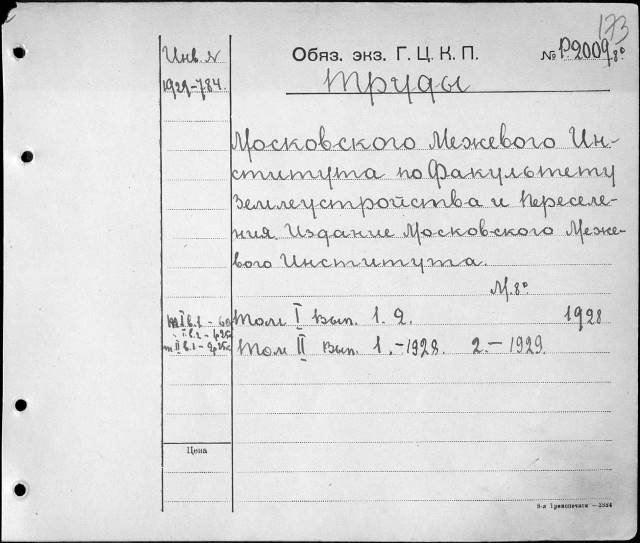 173
Инв. №
1929-784.
Обяз. экз. Г. Ц. К. П.
№ Р2009 8°
Труды
Московского Межевого Ин-
ститута по Факультету
Землеустройства и Переселе-
ния. Издание Московского Меже-
вого Института.
М. 8°
Том I Вып. 1. 2. 1928
Том II Вып. 1.-1928. 2.-1929.
Цена